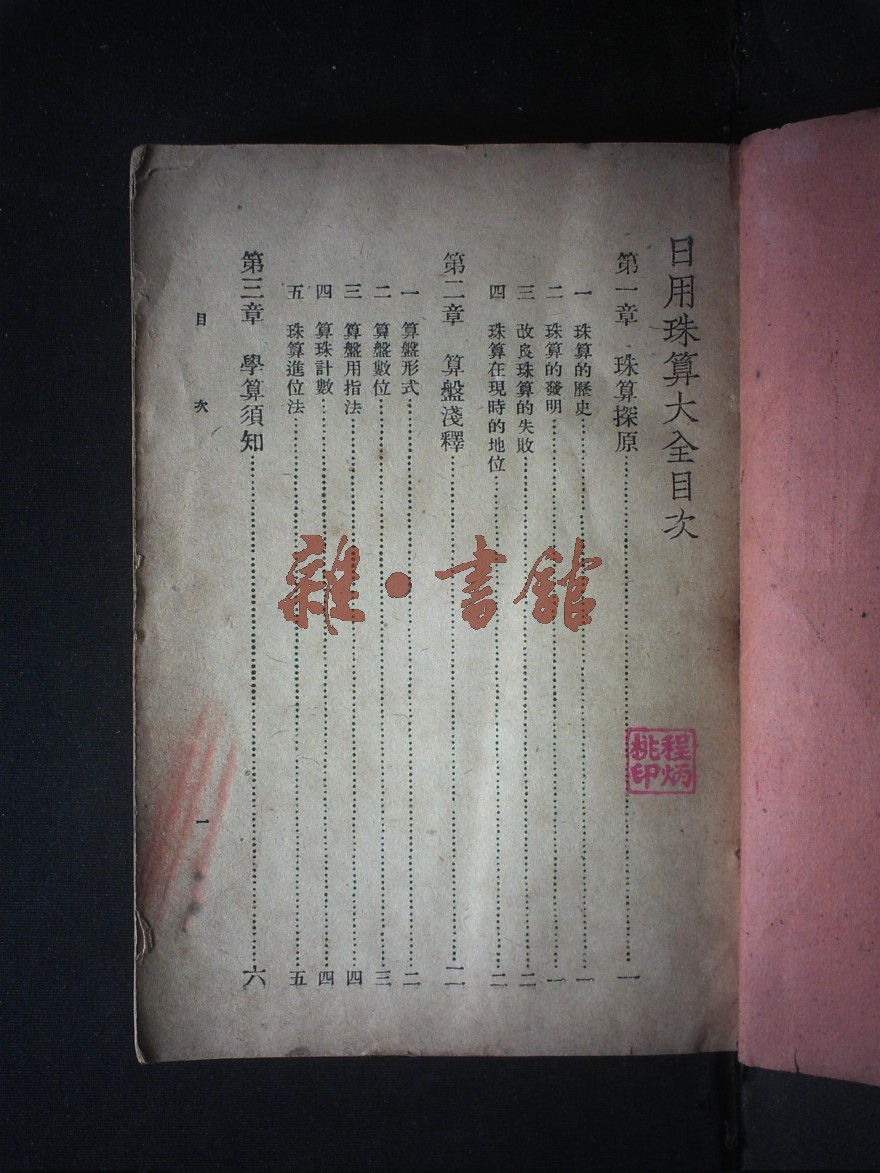 日用珠算大全目次
第一章 珠算探原 一
一 珠算的歷史 一
二 珠算的發明 一
三 改良珠算的失敗 二
四 珠算在現時的地位 二
第二章 算盤淺釋 二
一 算盤形式 二
二 算盤數位 三
三 算盤用指法 四
四 算珠計數 四
五 珠算進位法 五
第三章 學算須知 六
目次 一
程炳
桃印
雜·書館